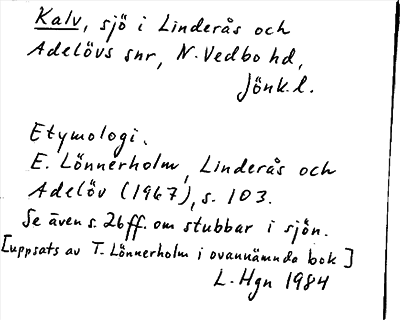 Kalv, sjö i Linderås och
Adelövs snr, N. Vedbo hd,
Jönk. l.
Etymologi.
E. Lönnerholm, Linderås och
Adelöv (1967), s. 103.
Se även s. 26 ff. om stubbar i sjön.
[uppsats av T. Lönnerholm i ovannämnda bok]
L. Hgn 1984